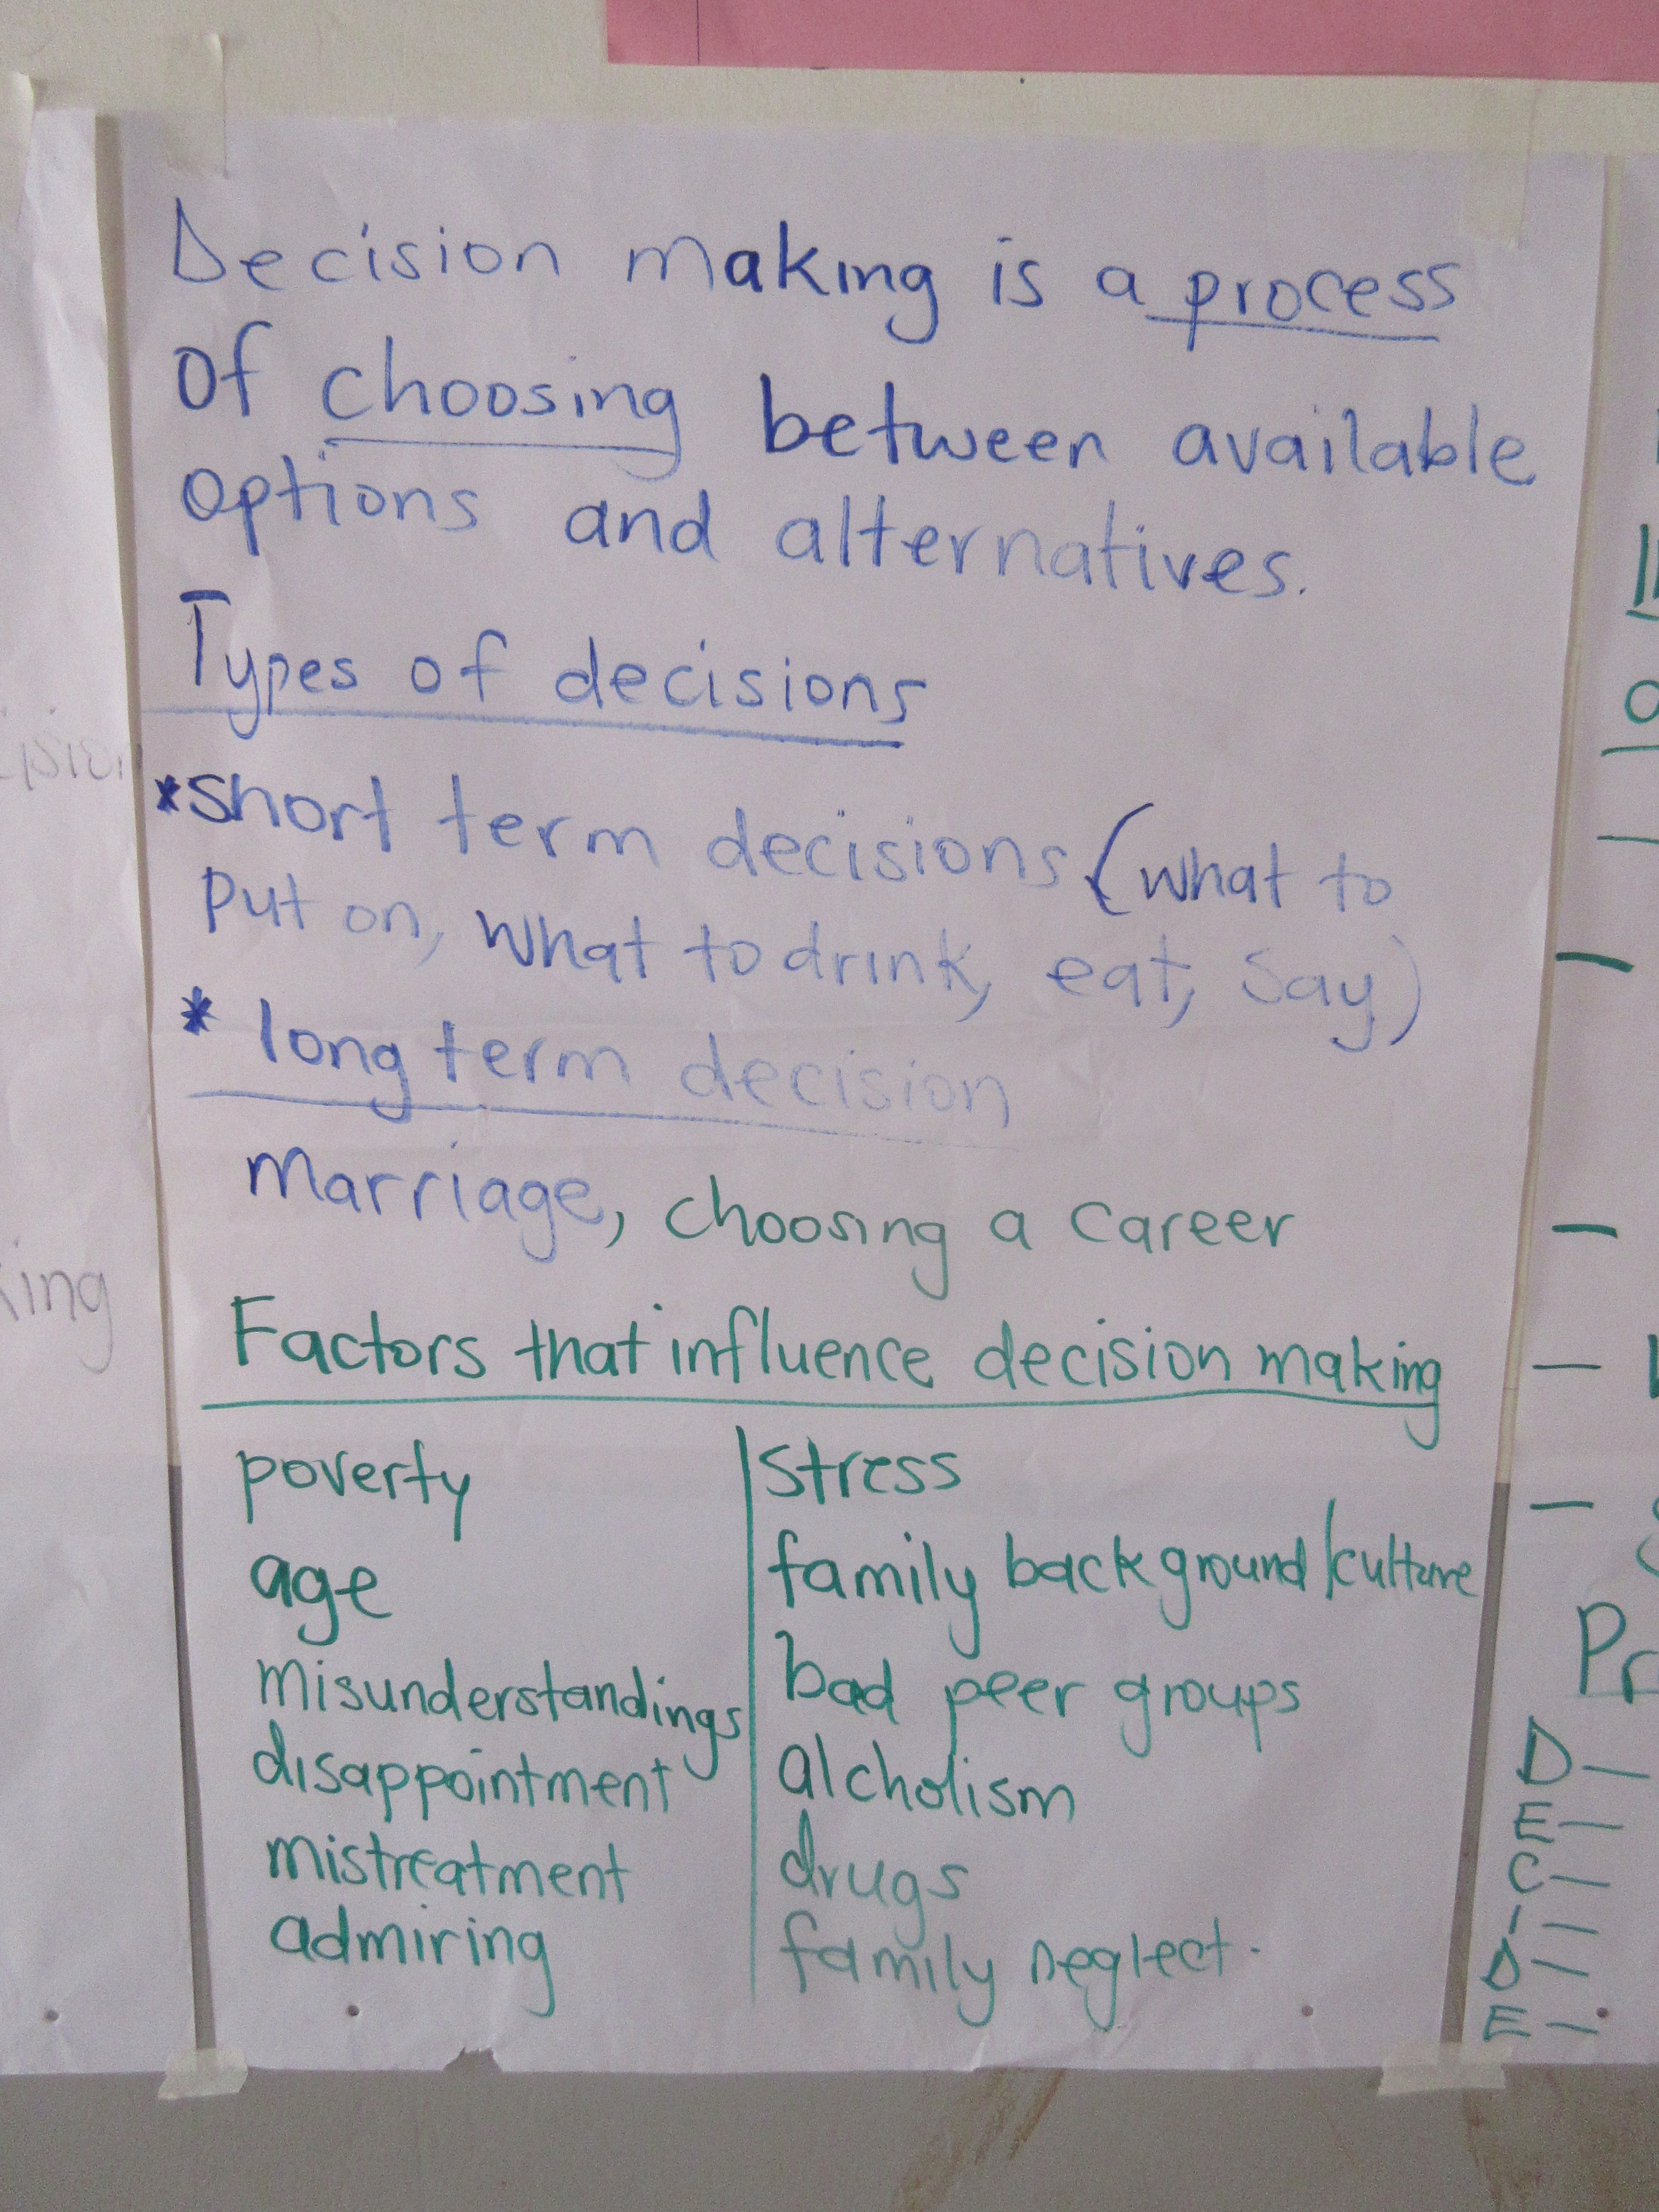 Decision making is a process
of choosing between available
options and alternatives.
Types of decisions
*short term decisions (what to
put on, what to drink, eat, say)
* long term decision
marriage, choosing a career
Factors that influence decision making
poverty
age
misunderstandings
disappointment
mistreatment
admiring
stress
family background/culture
bad peer groups
alcholism
drugs
family neglect.
king
Pr
D—
E—
C—
I—
D—
E—